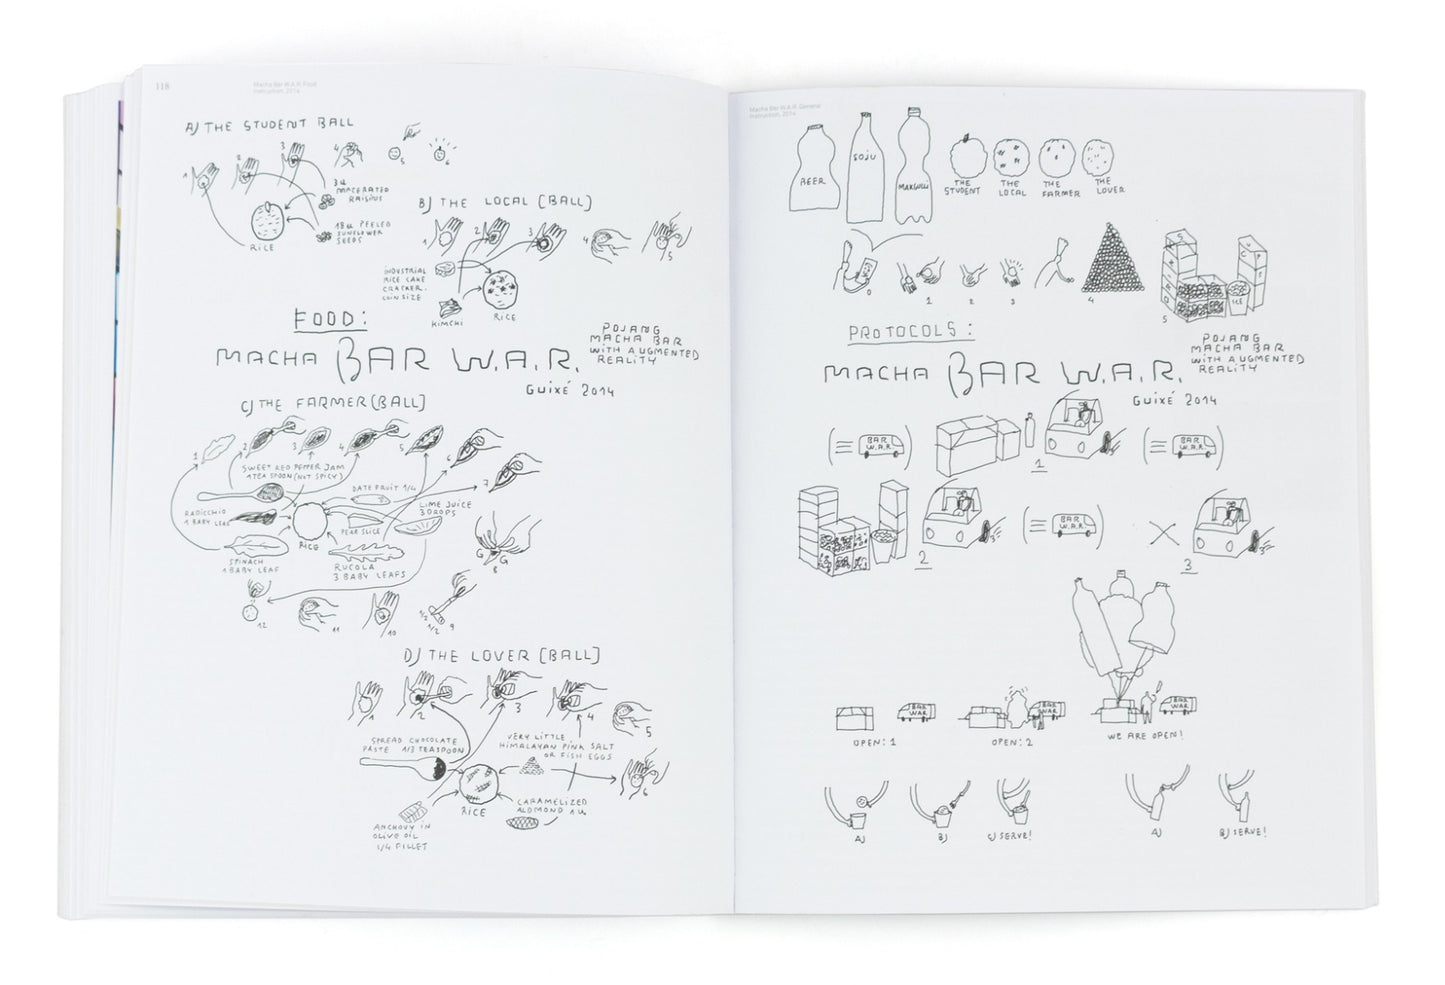 118
Macha Bar W.A.R. Food
Instruction, 2014
A) THE STUDENT BALL
1
2
3
4
5
6
3U
MACERATED
RAISINS
18U PEELED
SUNFLOWER
SEEDS
RICE
B) THE LOCAL (BALL)
1
2
3
4
5
INDUSTRIAL
RICE CAKE
CRACKER.
COIN SIZE
KIMCHI
RICE
FOOD:
MACHA BAR W.A.R.
POJANG
MACHA BAR
WITH AUGMENTED
REALITY
GUIXÉ 2014
C) THE FARMER (BALL)
1
2
3
4
5
6
7
SWEET RED PEPPER JAM
1 TEA SPOON (NOT SPICY)
DATE FRUIT 1/4
LIME JUICE
3 DROPS
RADICCHIO
1 BABY LEAF
PEAR SLICE
RICE
SPINACH
1 BABY LEAF
RUCOLA
3 BABY LEAFS
8
12
11
10
1/2
1/2
9
D) THE LOVER (BALL)
1
2
3
4
5
SPREAD CHOCOLATE
PASTE 1/3 TEASPOON
VERY LITTLE
HIMALAYAN PINK SALT
OR FISH EGGS
6
RICE
CARAMELIZED
ALMOND 1U
ANCHOVY IN
OLIVE OIL
1/4 FILLET
Macha Bar W.A.R. General
Instruction, 2014
BEER
SOJU
MAKGULLI
THE
STUDENT
THE
LOCAL
THE
FARMER
THE
LOVER
0
1
2
3
4
5
ICE
PROTOCOLS:
MACHA BAR W.A.R.
POJANG
MACHA BAR
WITH AUGMENTED
REALITY
GUIXÉ 2014
BAR
W.A.R.
1
BAR
W.A.R.
2
BAR
W.A.R.
3
OPEN: 1
BAR
WAR
OPEN: 2
BAR
WAR
WE ARE OPEN!
BAR
WAR
A)
B)
C) SERVE!
A)
B) SERVE!